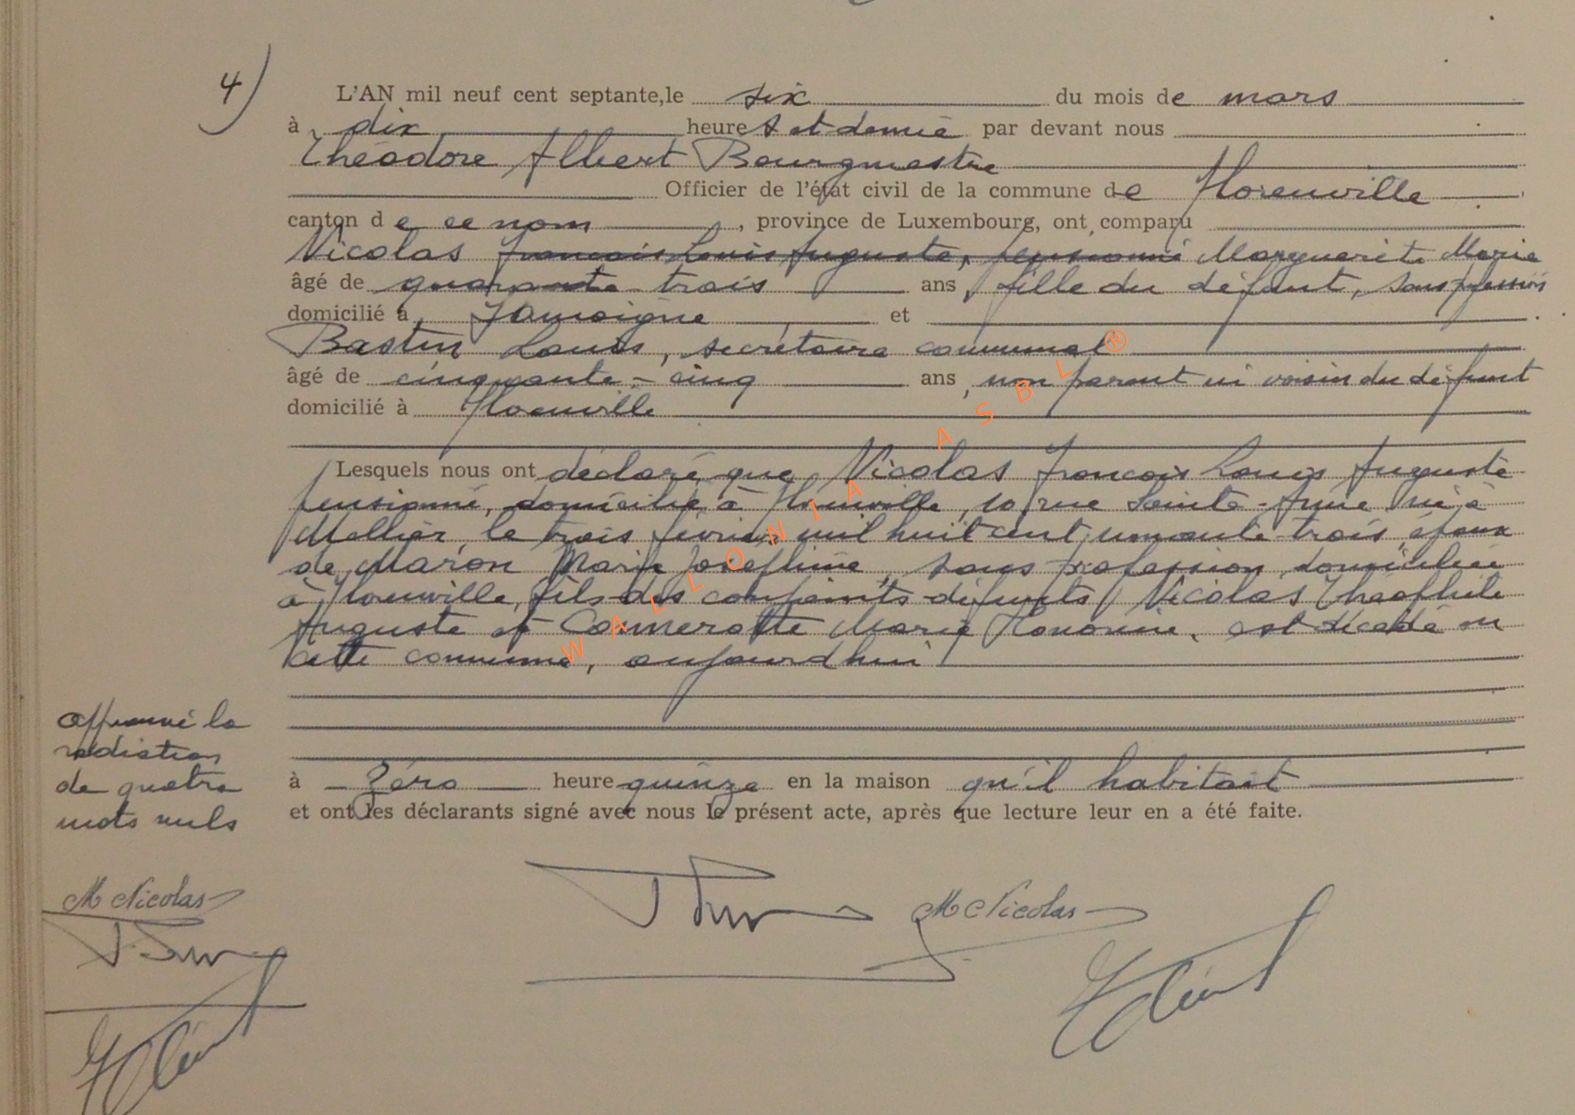 4)
L'AN mil neuf cent septante, le six du mois de mars
à dix heures et demie par devant nous
Théodore Albert Bourgmestre
Officier de l'état civil de la commune de Florenville
canton de ce nom, province de Luxembourg, ont comparu
Nicolas François Louis Auguste, pensionné Marguerite Marie
âgé de quarante trois ans, fille du défunt, sans profession
domicilié à Jamoigne et
Bastin Louis, secrétaire communal
âgé de cinquante-cinq ans, non parent ni voisin du défunt
domicilié à Florenville
Lesquels nous ont déclaré que Nicolas François Louis Auguste
pensionné, domicilié à Florenville, 10 rue Sainte-Anne né à
Mellier, le trois février mil huit cent nonante trois époux
de Maron Marie Joséphine, sans profession domiciliée
à Florenville, fils des conjoints défunts Nicolas Théophile
Auguste et Marie Honorine, est décédé en
cette commune, aujourd'hui
à zéro heure quinze en la maison qu'il habitait
et ont les déclarants signé avec nous le présent acte, après que lecture leur en a été faite.
Approuvé la
radiation
de quatre
mots nuls
M Nicolas
M Nicolas
WALLONIA ASBL ®